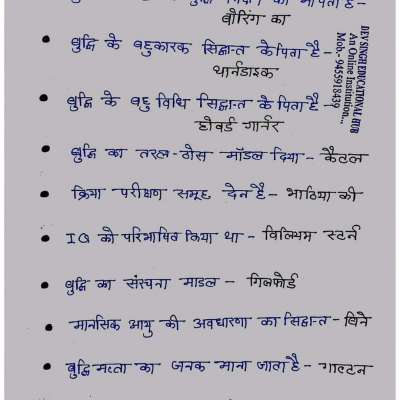 बौरिंग का
• बुद्धि के बहुकारक सिद्धान्त के पिता है -
थार्नडाइक
• बुद्धि के बहु विधि सिद्धान्त के पिता है -
होवर्ड गार्नर
• बुद्धि का तरल - ठोस मॉडल दिया - कैटल
• क्रिया परीक्षण समूह देन है - भाटिया की
• IQ को परिभाषित किया था - विलियम स्टर्न
• बुद्धि का संरचना माडल - गिलफोर्ड
• मानसिक आयु की अवधारणा का सिद्धान्त - बिने
• बुद्धिमत्ता का जनक माना जाता है - गाल्टन
DEV SINGH EDUCATIONAL HUB
An Online Institution....
Mob: 9455918439